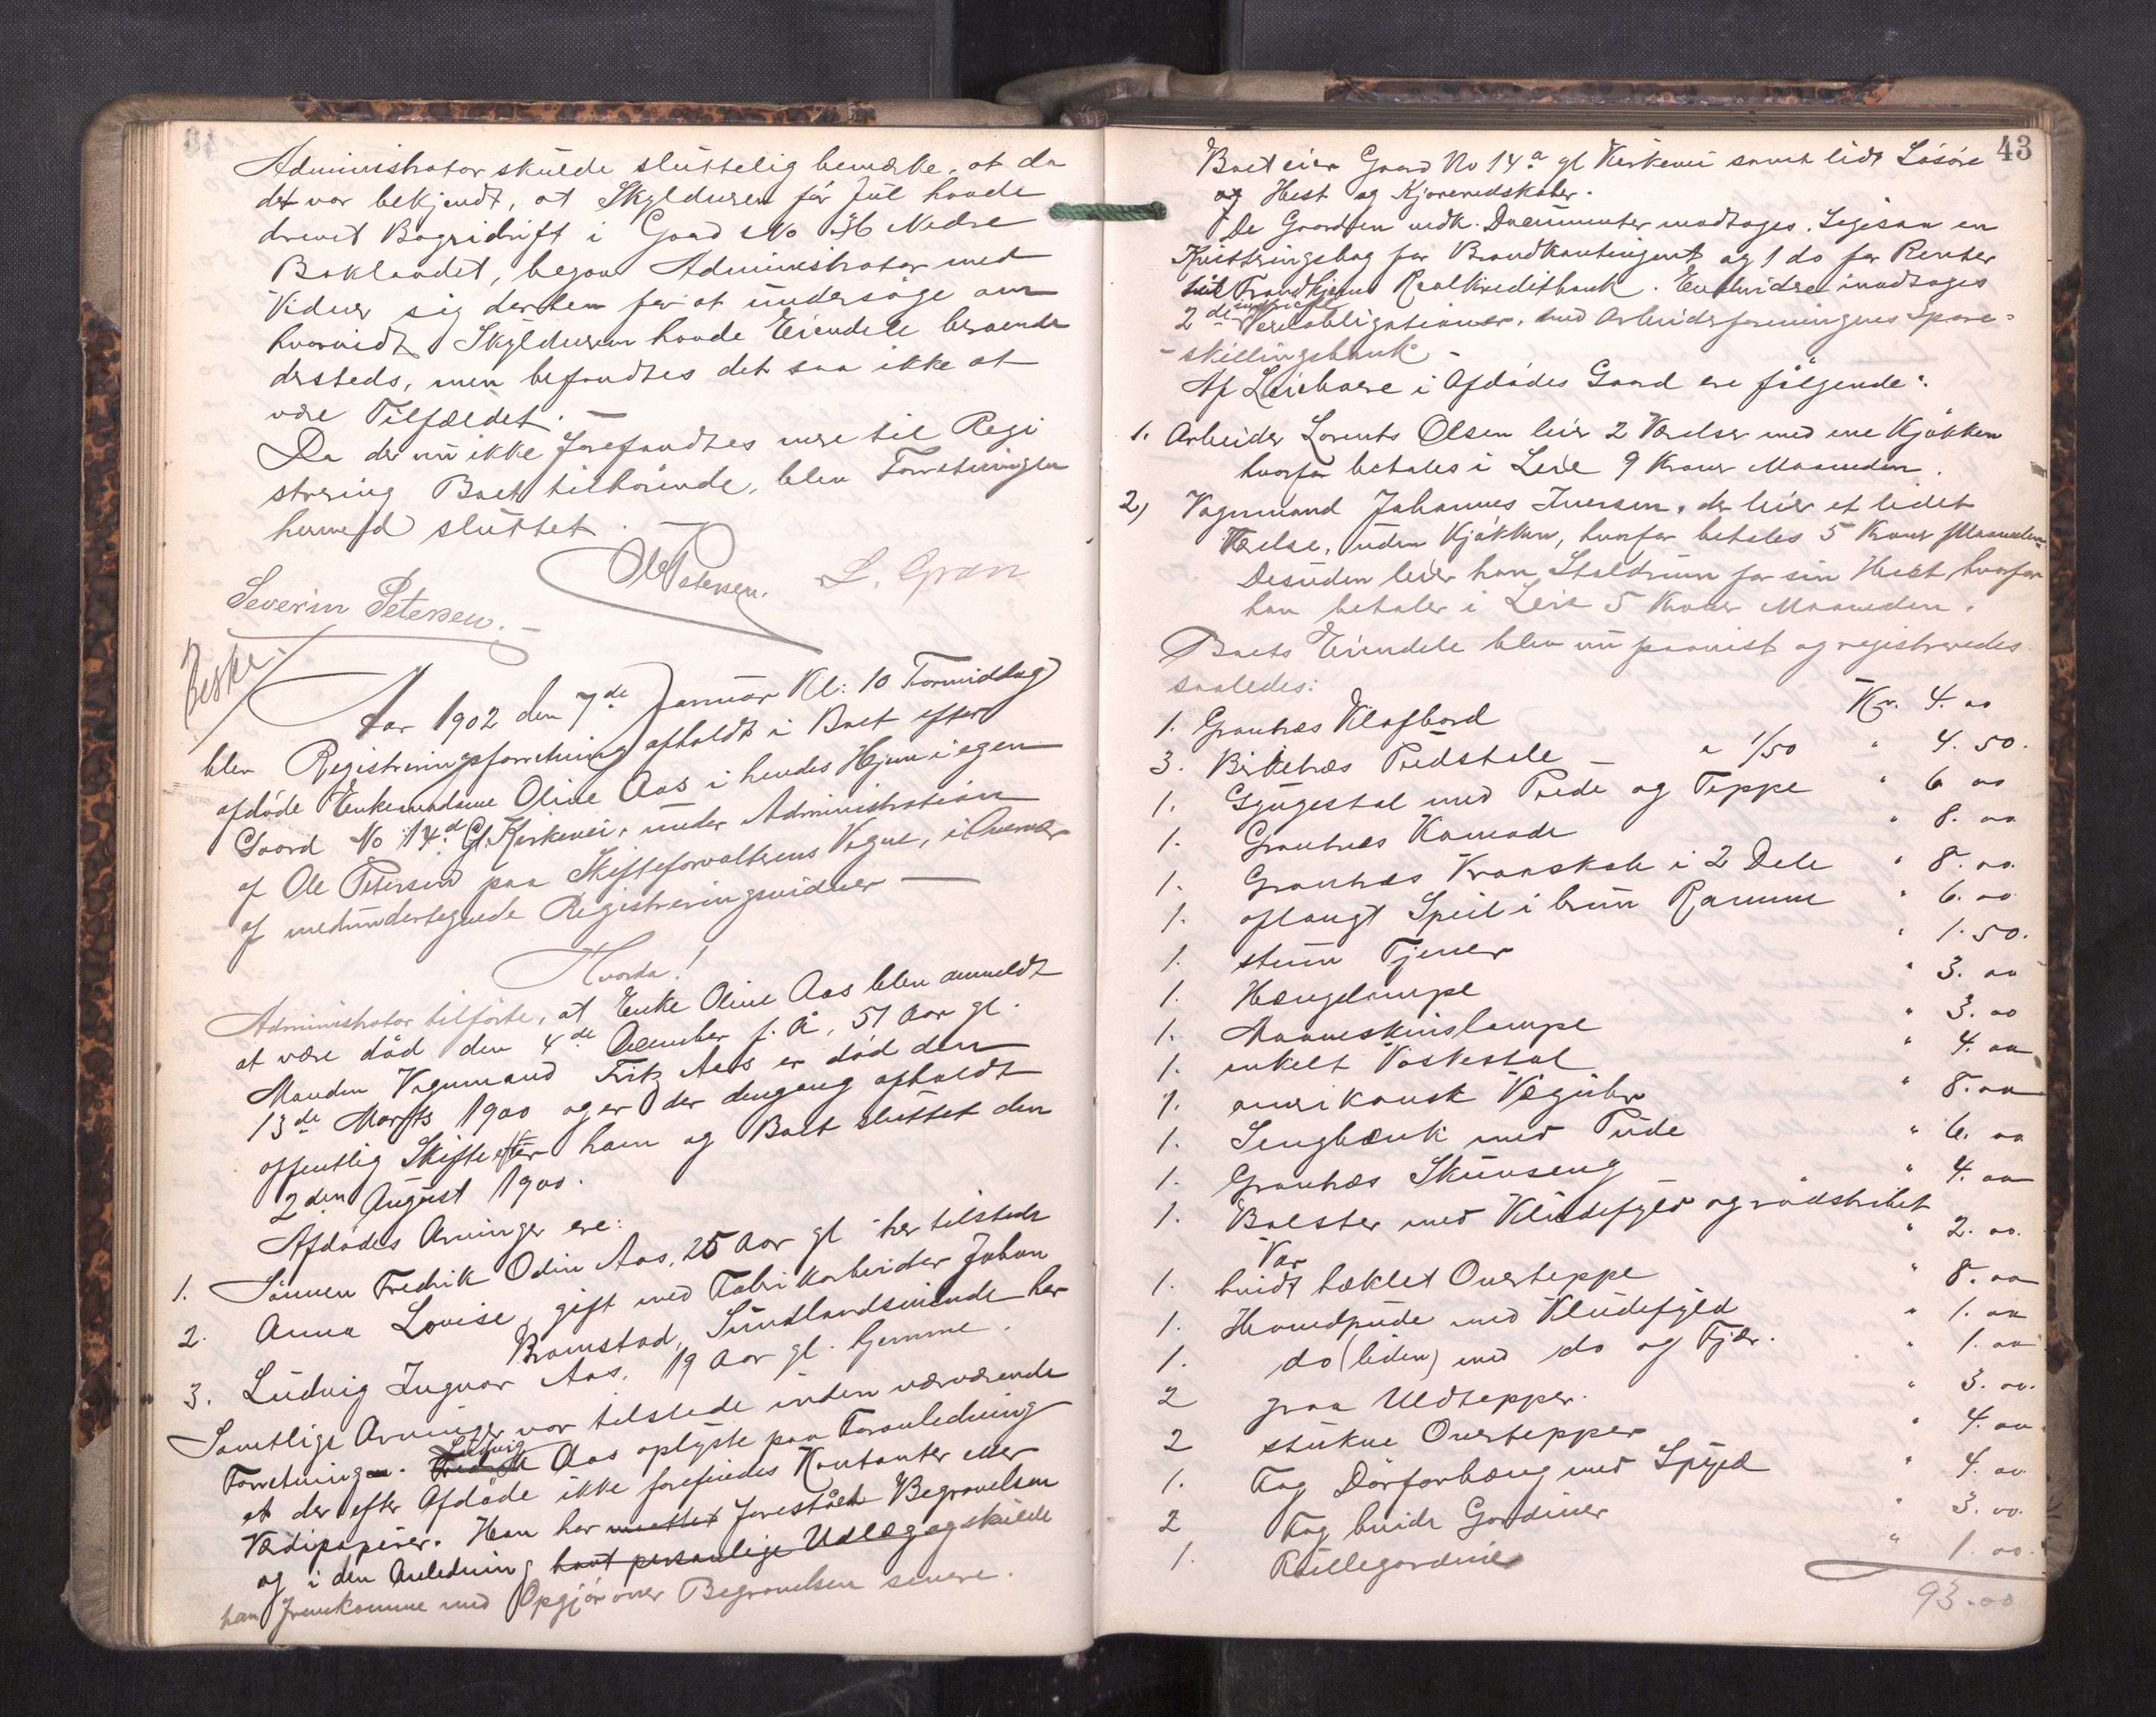 Administrator skulde sluttelig bemærke, at da
det var bekjendt, at Skylderen før Jul havde
drevet Bageridrift i Gaard No 36 Nedre
Baklandet, begav Administrator med
Vidner sig derhen for at undersøge om
hvorvidt Skylderen havde Eiendele beroende
dersteds, men befandtes det saa ikke at
være Tilfældet. —
Da der nu ikke forefandtes mere til Regi
strering Boet tilhørende, blev Forretningen
hermed sluttet. —
Ole Petersen. L. Gran
Severin Petersen. —
Beske.
Aar 1902 den 7de Januar Kl: 10 Formiddag
blev Registreringsforretning afholdt i Boet efter
afdøde Enkemadame Oline Aas i hendes Hjem i egen
Gaard No 14a Gl. Kirkevei, under Administration
af Ole Petersen paa Skifteforvalterens Vegne, i Overvær
af medundertegnede Registreringsvidner —
Hvorda!
Administrator tilførte, at Enke Oline Aas blev anmeldt
at være død den 4de December f. Å, 51 Aar gl.
Manden Vognmand Fritz Aas er død den
13de Marts 1900 og er der dengang afholdt
offentlig Skifte efter ham og Boet sluttet den
2den August 1900.
Afdødes Arvinger ere:
1. Sønnen Fredrik Odin Aas, 25 Aar gl her tilstede
2. Anna Lovise, gift med Fabrikarbeider Johan
Bromstad, Sundlandsminde her
3. Ludvig Ingvar Aas, 19 Aar gl. hjemme.
Samtlige Arvinger var tilstede under nærværende
Forretning. Fredrik Ludvig Aas oplyste paa Foranledning
at der efter Afdøde ikke forefindes Kontanter eller
Værdipapirer. Han har maattet forestået Begravelsen
og i den Anledning havt personlige Udlæg og skulde
han fremkomme med Opgjør over Begravelsen senere.
43
Boet eier Gaard No 14a gl Kirkevei samt lidt Løsøre
og Hest og Kjøreredskaber.
De Gaarden vedk. Documenter modtages. Ligesaa en
Kvitteringsbog for Brandkontingent og 1 do for Renter
til Trondhjems Realkreditbank. Endvidere modtages
2de indfriede Vexelobligationer, med Arbeiderforeningens Spare-
-skillingsbank —
Af Leieboere i Afdødes Gaard ere følgende:
1. Arbeider Lorents Olsen leier 2 Værelser med ene Kjøkken
hvorfor betales i Leie 9 Kroner Maaneden.
2) Vognmand Johannes Iversen, der leier et lidet
Værelse, uden Kjøkken, hvorfor betales 5 Kroner Maaneden.
Desuden leier han Staldrum for sin Hest, hvorfor
han betaler i Leie 5 Kroner Maaneden.
Boets Eiendele blev nu paavist og registreredes
saaledes:
1. Grantræs Klafbord Kr. 4. oo
3. Birketræs Pudstole — a 1/50 " 4. 50.
1. Gyngestol med Pude og Teppe " 6 oo
1. Grantræs Komode " 8. oo
1. Grantræs Kravskab i 2 Dele " 8. oo.
1. aflangt Speil i brun Ramme " 6. oo
1. stum Tjener " 1. 50.
1. Hængelampe " 3. oo
1. Maaneskinslampe " 3. oo
1. enkelt Vaskestol " 4. oo
1. amerikansk Vægur " 8. oo
1. Sengbænk med Pude " 6. oo
1. Grantræs Skuvseng " 4. oo
1. Bolster med Kludefyld og rødstribet
Var " 2. oo.
1. hvidt heklet Overteppe " 8. oo
1. Hovedpude med Kludefyld " 1. oo
1. do (liden) med do og Fjær. " 1. oo
2 graa Uldtepper. " 3. oo.
2 stukne Overtepper " 4. oo
1. Fag Dørforhæng med Spyd " 4. oo
2 Fag hvide Gardiner " 3. oo.
1. Rullegardin " 1. oo.
93. oo